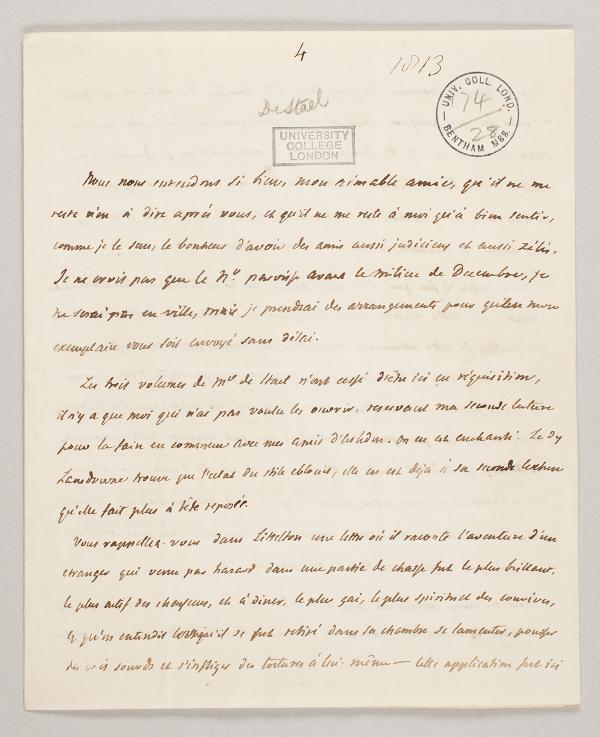 4
1813
De Stael
UNIV. COLL. LOND.
74
28
BENTHAM MSS.
UNIVERSITY
COLLEGE
LONDON
Nous nous entendons si bien, mon aimable amie, qu'il ne me
reste rien à dire après vous, et qu'il ne me reste à moi qu'à bien sentir,
comme je le sens, le bonheur d'avoir des amis aussi judicieux et aussi zélés.
Je ne crois pas que le N.o paroisse avant le milieu de Decembre, je
ne serai pas en ville, mais je prendrai des arrangements pour qu'un mon
exemplaire vous soit envoyé sans délai.
Les trois volumes de Me de Stael n'ont cessé d'être ici en réquisition,
il n'y a que moi qui n'ai pas voulu les ouvrir, reservant ma seconde lecture
pour la faire en commun avec mes amis d'. On en est enchanté. Le Dy
Lansdowne trouve que l'eclat du stile eblouit, elle en est déjà à sa seconde lecture
qu'elle fait plus à tête reposée.
Vous rappellez-vous dans Littelton une lettre où il raconte l'aventure d'un
etranger qui venu par hazard dans une partie de chasse fut le plus brillant,
le plus actif des chasseurs, et à diner, le plus gai, le plus spirituel des convives,
et qu'on entendit lorsqu'il se fut retiré dans sa chambre se lamenter, pousser
des cris sourds et s'infliger des tortures à lui-même — cette application fut ici